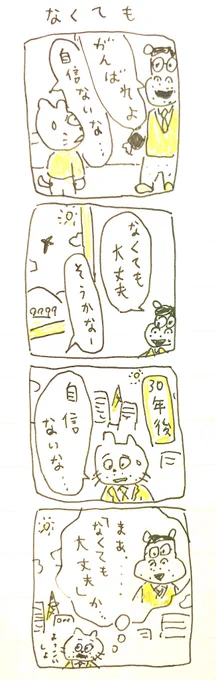 なくても
がんばれよ
自信
ないな…
なくても
大丈夫
そうかなー
30年後
自信
ないな…
まあ、……
「なくても
大丈夫」か…
よっこい
しょ